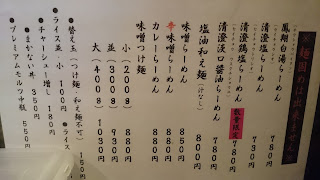 麺固めは出来ません
鳳翔白湯らーめん 730円
清澄塩らーめん 730円
清澄鶏塩らーめん 数量限定 780円
清澄淡口醤油らーめん 780円
塩油和え麺(汁なし) 800円
味噌らーめん 850円
辛味噌らーめん 880円
カレーらーめん 880円
味噌つけ麺
小(200g) 880円
並(300g) 930円
大(400g) 1030円
替え玉(つけ麺・和え麺不可) 150円
ライス並・小 100円
ライス
チャーシュー増し 180円
まかない丼 350円
プレミアムモルツ中瓶 550円